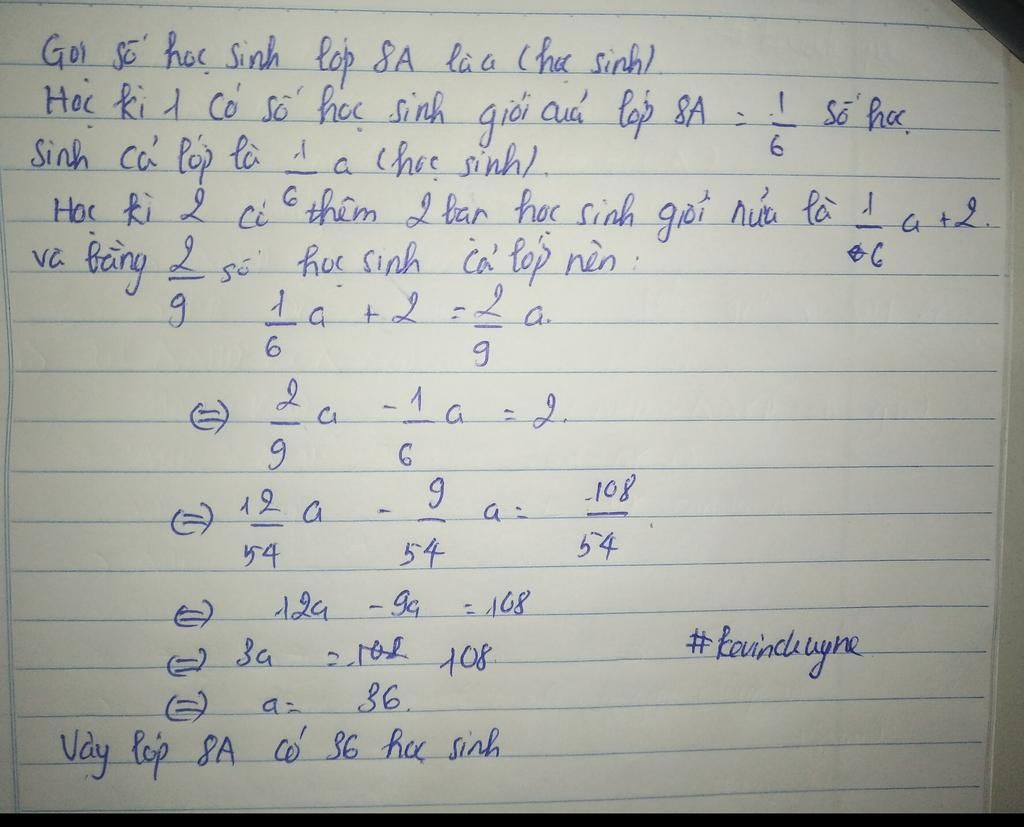 Gọi số học sinh lớp 8A là a (học sinh).
Học kì 1 có số học sinh giỏi cuả lớp 8A = 1/6 số học
sinh cả lớp là 1/6 a (học sinh).
Học kì 2 có thêm 2 bạn học sinh giỏi nửa là 1/6 a + 2.
và bằng 2/9 số học sinh cả lớp nên:
1/6 a + 2 = 2/9 a.
⇔ 2/9 a - 1/6 a = 2.
⇔ 12/54 a - 9/54 a = 108/54
⇔ 12a - 9a = 108
⇔ 3a = 108
#kevinchuyne
⇔ a = 36.
Vậy lớp 8A có 36 học sinh